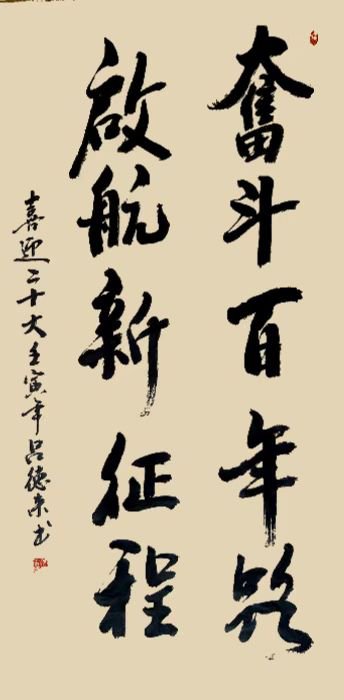 奮斗百年路
啟航新征程
喜迎二十大壬寅年吕德来书